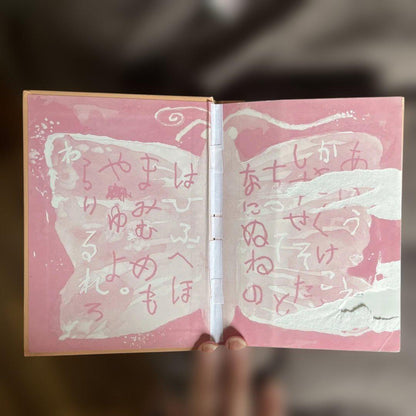 あいう
かくけこ
しすせそた
ちってと
なにぬねの
はひふへほ
まみむめも
やゆよ。
らりるれろ
わ